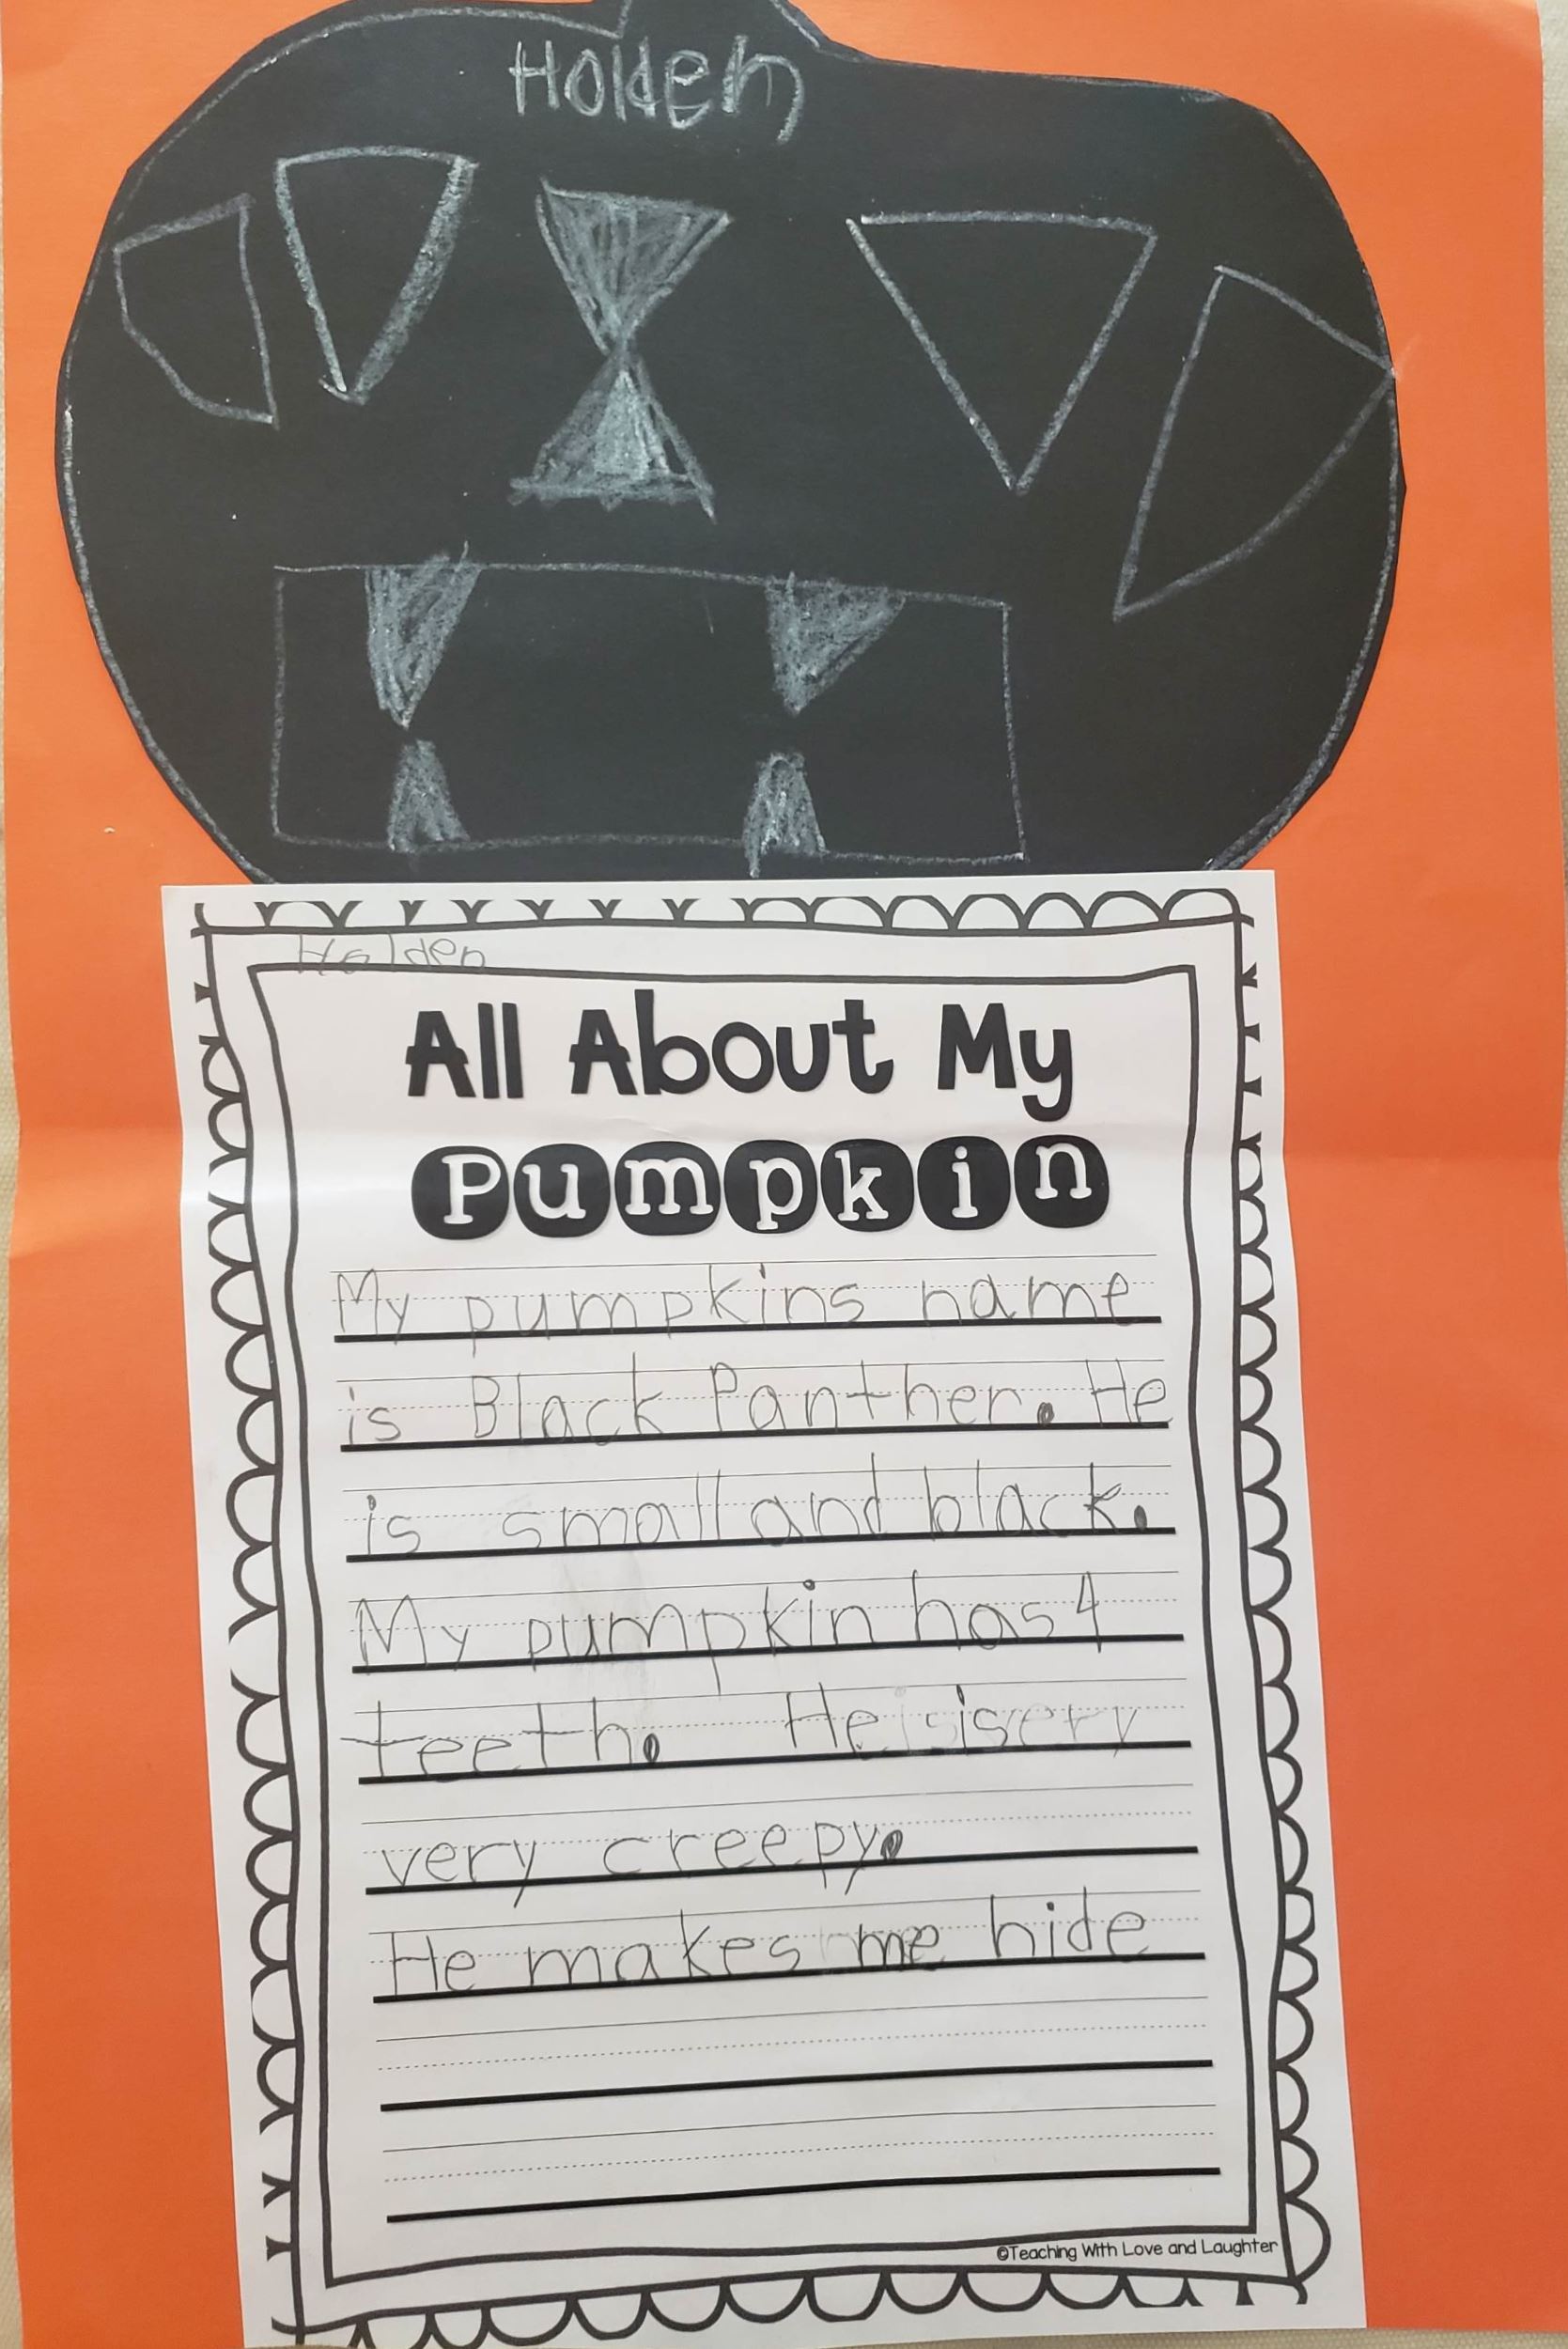 Holden
Holden
All About My
Pumpkin
My pumpkins name
is Black Panther. He
is small and black.
My pumpkin has 4
teeth. He is
very creepy.
He makes me hide
©Teaching With Love and Laughter